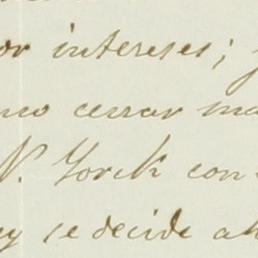 or intereses;
mo cerrar ma
N. York con
ey se decide ah